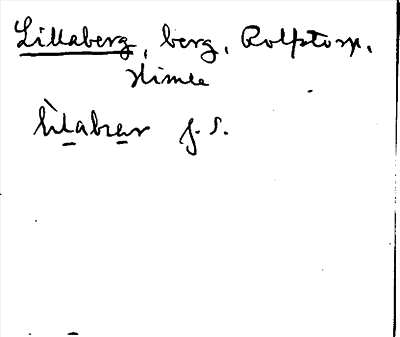 Lillaberg, berg, Rolfstorp,
Himle
f. s.